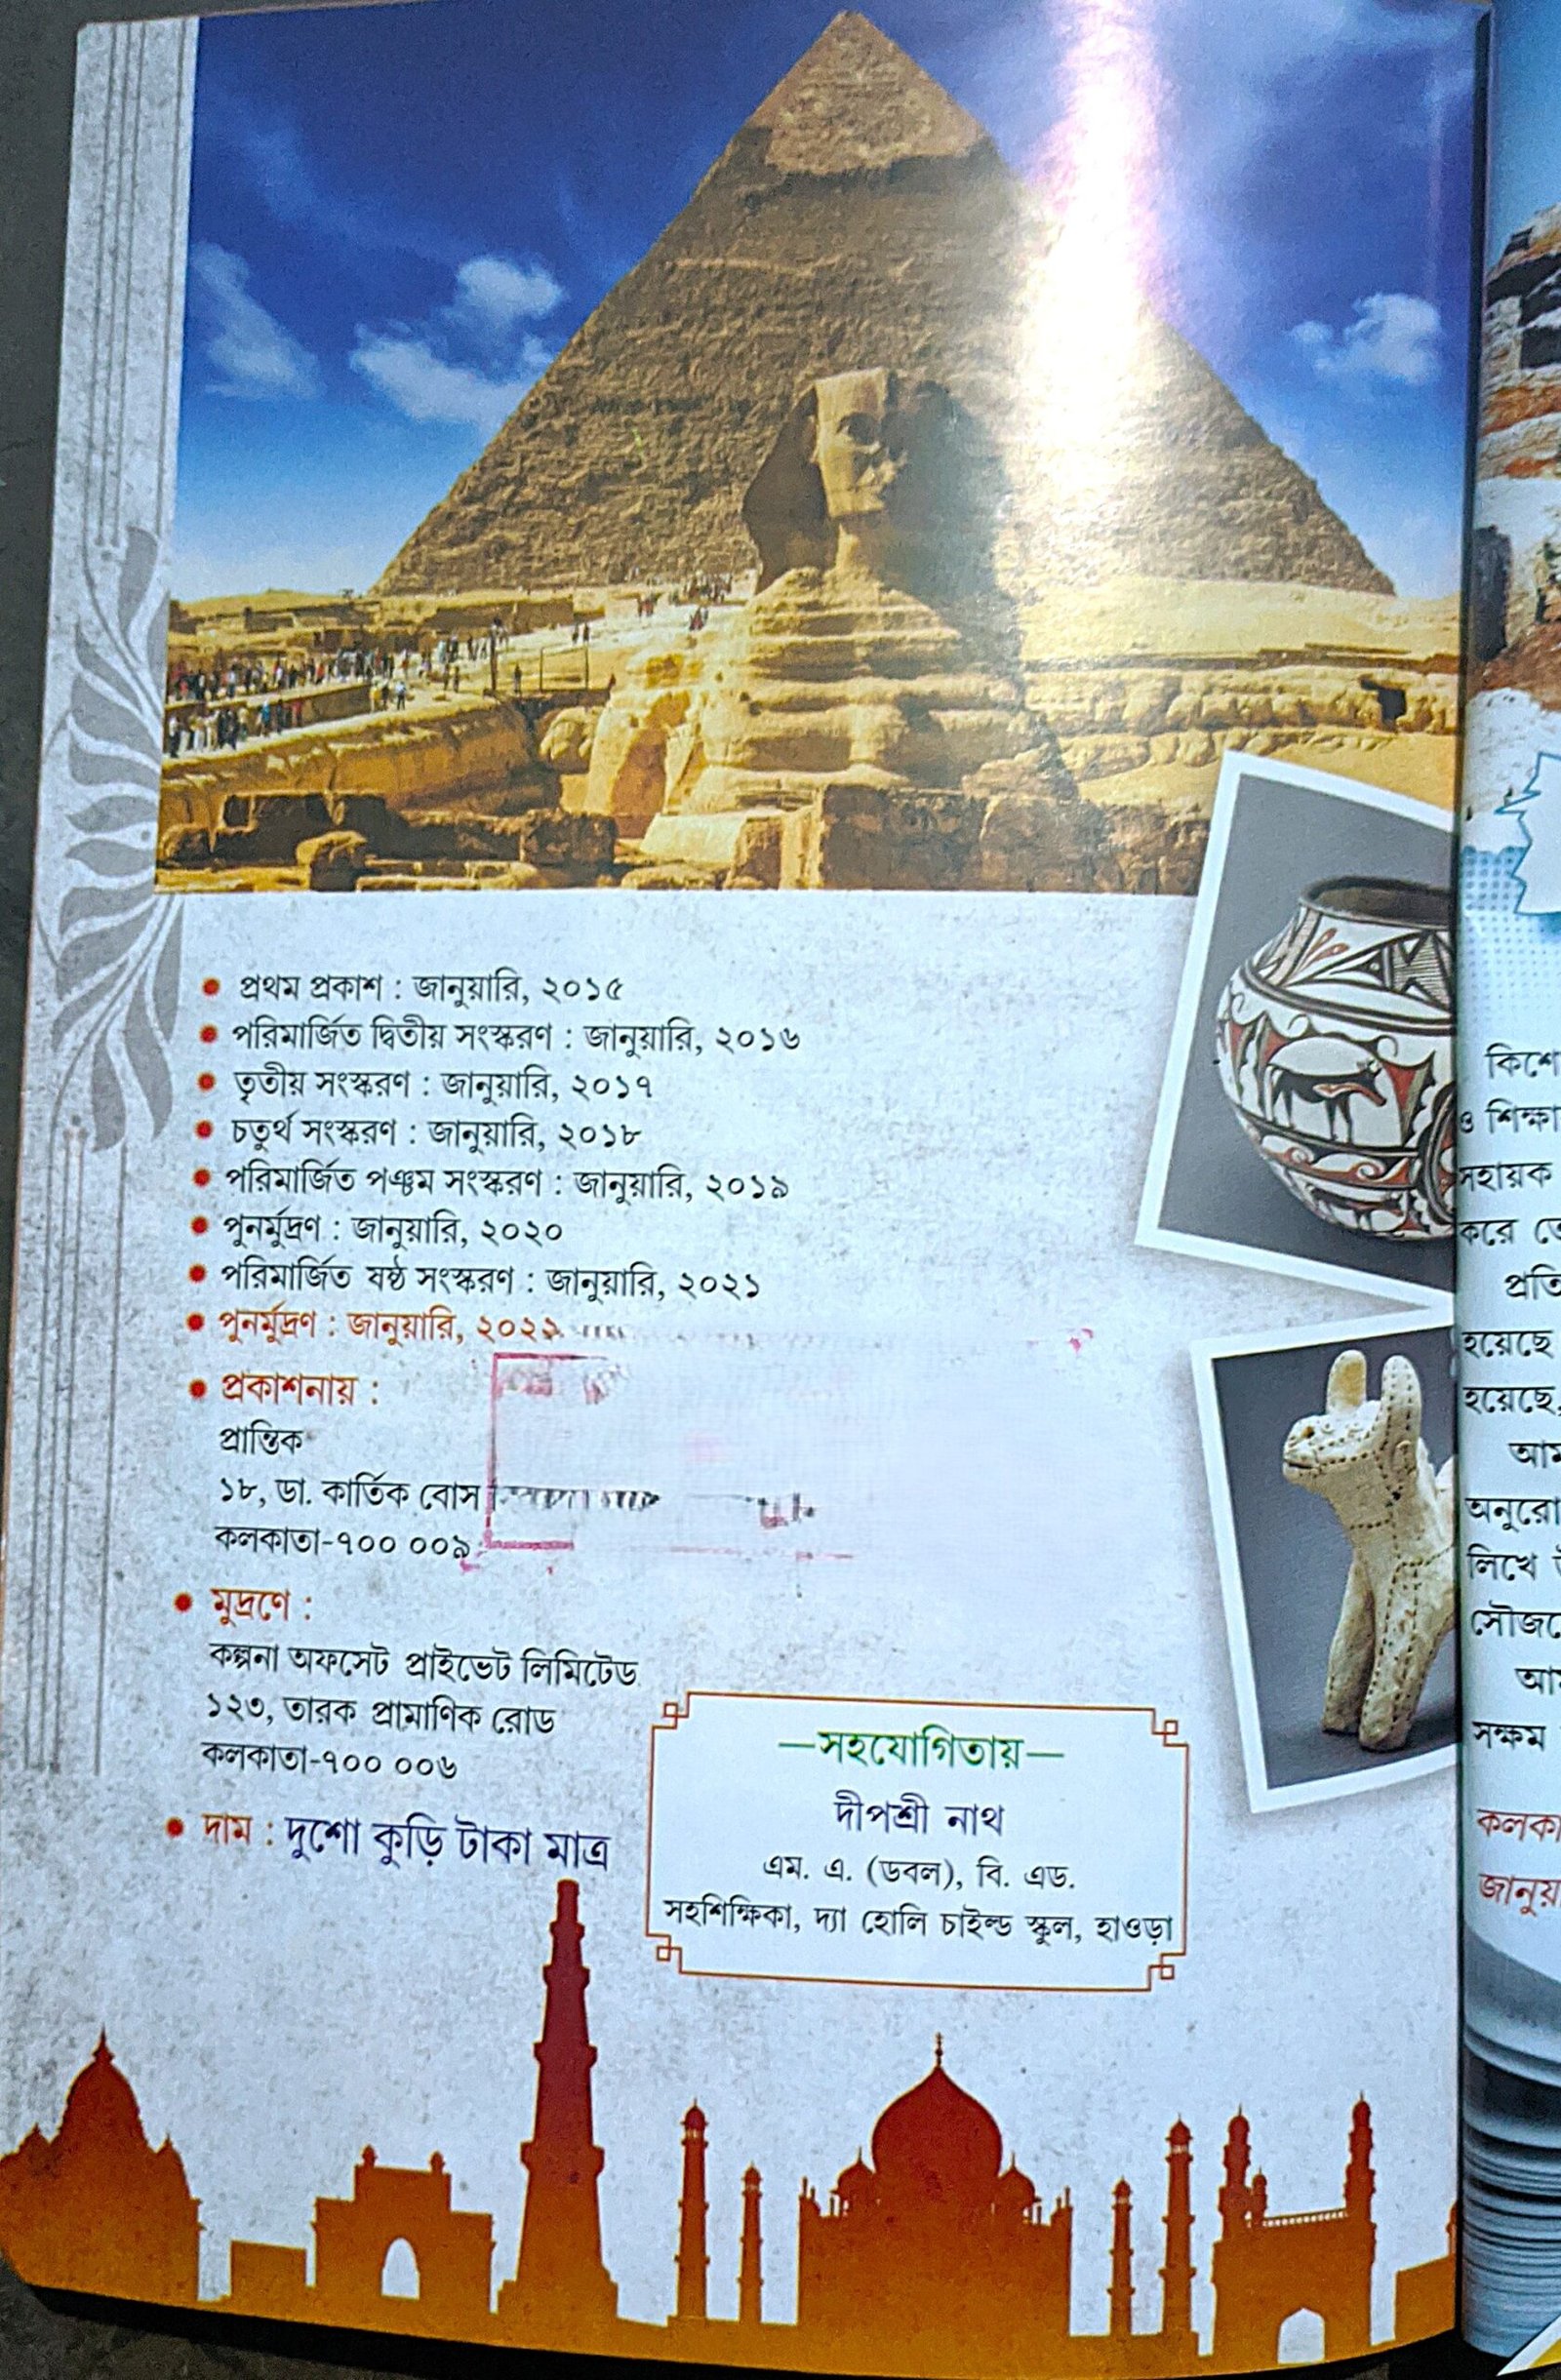 প্রথম প্রকাশ : জানুয়ারি, ২০১৫
পরিমার্জিত দ্বিতীয় সংস্করণ : জানুয়ারি, ২০১৬
তৃতীয় সংস্করণ : জানুয়ারি, ২০১৭
চতুর্থ সংস্করণ : জানুয়ারি, ২০১৮
পরিমার্জিত পঞ্চম সংস্করণ : জানুয়ারি, ২০১৯
পুনর্মুদ্রণ : জানুয়ারি, ২০২০
পরিমার্জিত ষষ্ঠ সংস্করণ : জানুয়ারি, ২০২১
পুনর্মুদ্রণ : জানুয়ারি, ২০২২
প্রকাশনায় :
প্রান্তিক
১৮, ডা. কার্তিক বোস
কলকাতা-৭০০ ০০৯
মুদ্রণে :
কল্পনা অফসেট প্রাইভেট লিমিটেড
১২৩, তারক প্রামাণিক রোড
কলকাতা-৭০০ ০০৬
দাম : দুশো কুড়ি টাকা মাত্র
—সহযোগিতায়—
দীপশ্রী নাথ
এম. এ. (ডবল), বি. এড.
সহশিক্ষিকা, দ্যা হোলি চাইল্ড স্কুল, হাওড়া
ও
সহায়ক
করে
হয়েছে
হয়েছে,
লিখে
সক্ষম